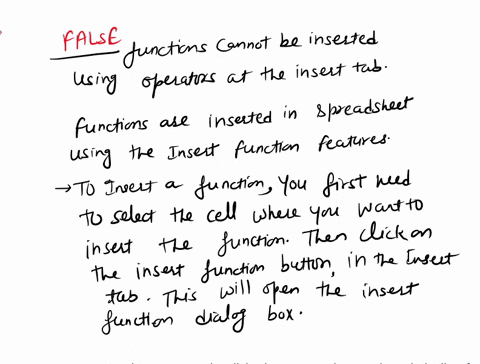 FALSE functions cannot be inserted
using operators at the insert tab.
functions are inserted in spreadsheet
using the Insert function features.
→ To Insert a function, you first need
to select the cell where you want to
insert the function. Then click on
the insert function button, in the Insert
tab. This will open the insert
function dialog box.